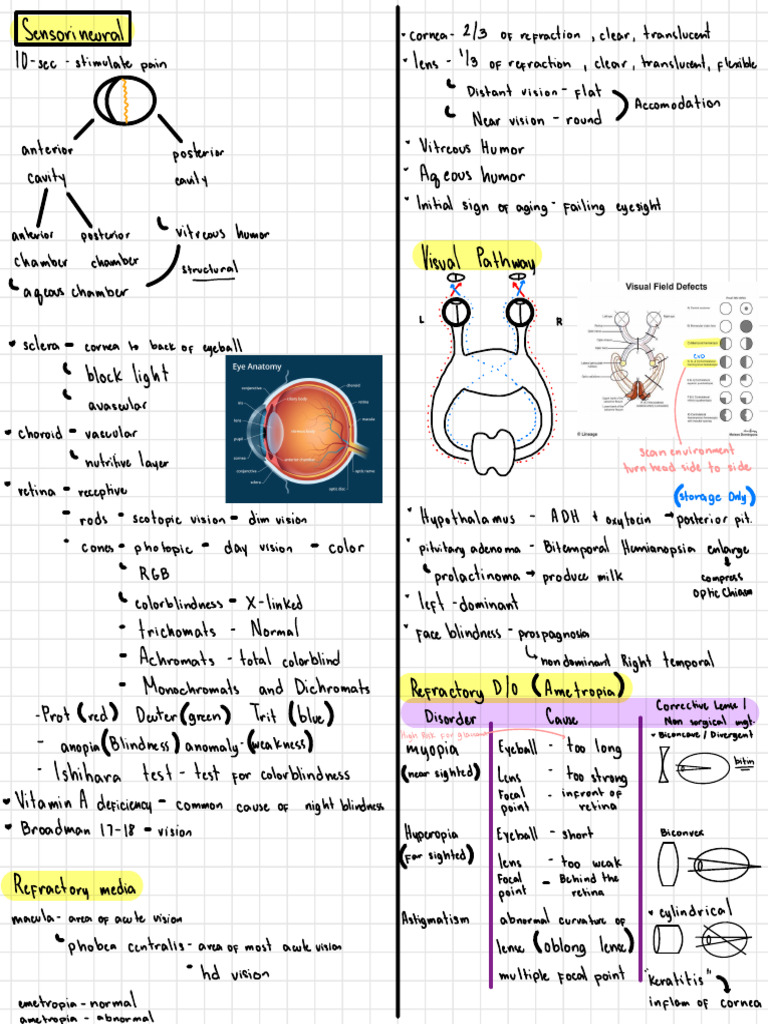 Sensorineural
10-sec - stimulate pain
anterior
cavity
posterior
cavity
anterior
chamber
posterior
chamber
vitreous humor
structural
aqeous chamber
• sclera - cornea to back of eyeball
block light
avascular
• choroid - vascular
nutritive layer
• retina - receptive
- rods - scotopic vision - dim vision
• cones - photopic - day vision - color
RGB
colorblindness - X-linked
• trichomats - Normal
- Achromats - total colorblind
- Monochromats and Dichromats
-Prot (red) Deuter (green) Trit (blue)
- anopia (Blindness) anomaly-(weakness)
- Ishihara test - test for colorblindness
• Vitamin A deficiency - common cause of night blindness
• Broadman 17-18 - vision
Eye Anatomy
Refractory media
macula - area of acute vision
phobea centralis - area of most acute vision
• hd vision
emetropia - normal
ametropia - abnormal
• cornea - 2/3 of refraction, clear, translucent
• lens - 1/3 of refraction, clear, translucent, flexible
Distant vision - flat
Near vision - round
Accomodation
• Vitreous Humor
• Aqeous humor
• Initial sign of aging - failing eyesight
Visual Pathway
L
R
Visual Field Defects
© Lineage
scan environment
turn head side to side
(storage only)
• Hypothalamus - ADH + oxytocin → posterior pit.
• pituitary adenoma - Bitemporal Hemianopsia enlarge
prolactinoma → produce milk
compress
optic Chiasm
• left - dominant
• Face blindness - prospagnosia
nondominant Right temporal
Refractory D/O (Ametropia)
Disorder
Cause
Corrective Lense /
Non surgical mgt.
High Risk for
myopia
(near sighted)
Eyeball - too long
Lens - too strong
Focal point - infront of retina
• Biconcave / Divergent
Hyperopia
(far sighted)
Eyeball - short
lens - too weak
Focal point - Behind the retina
Biconvex
Astigmatism
abnormal curvature of
lense (oblong lense)
multiple focal point
• cylindrical
"keratitis"
inflam of cornea